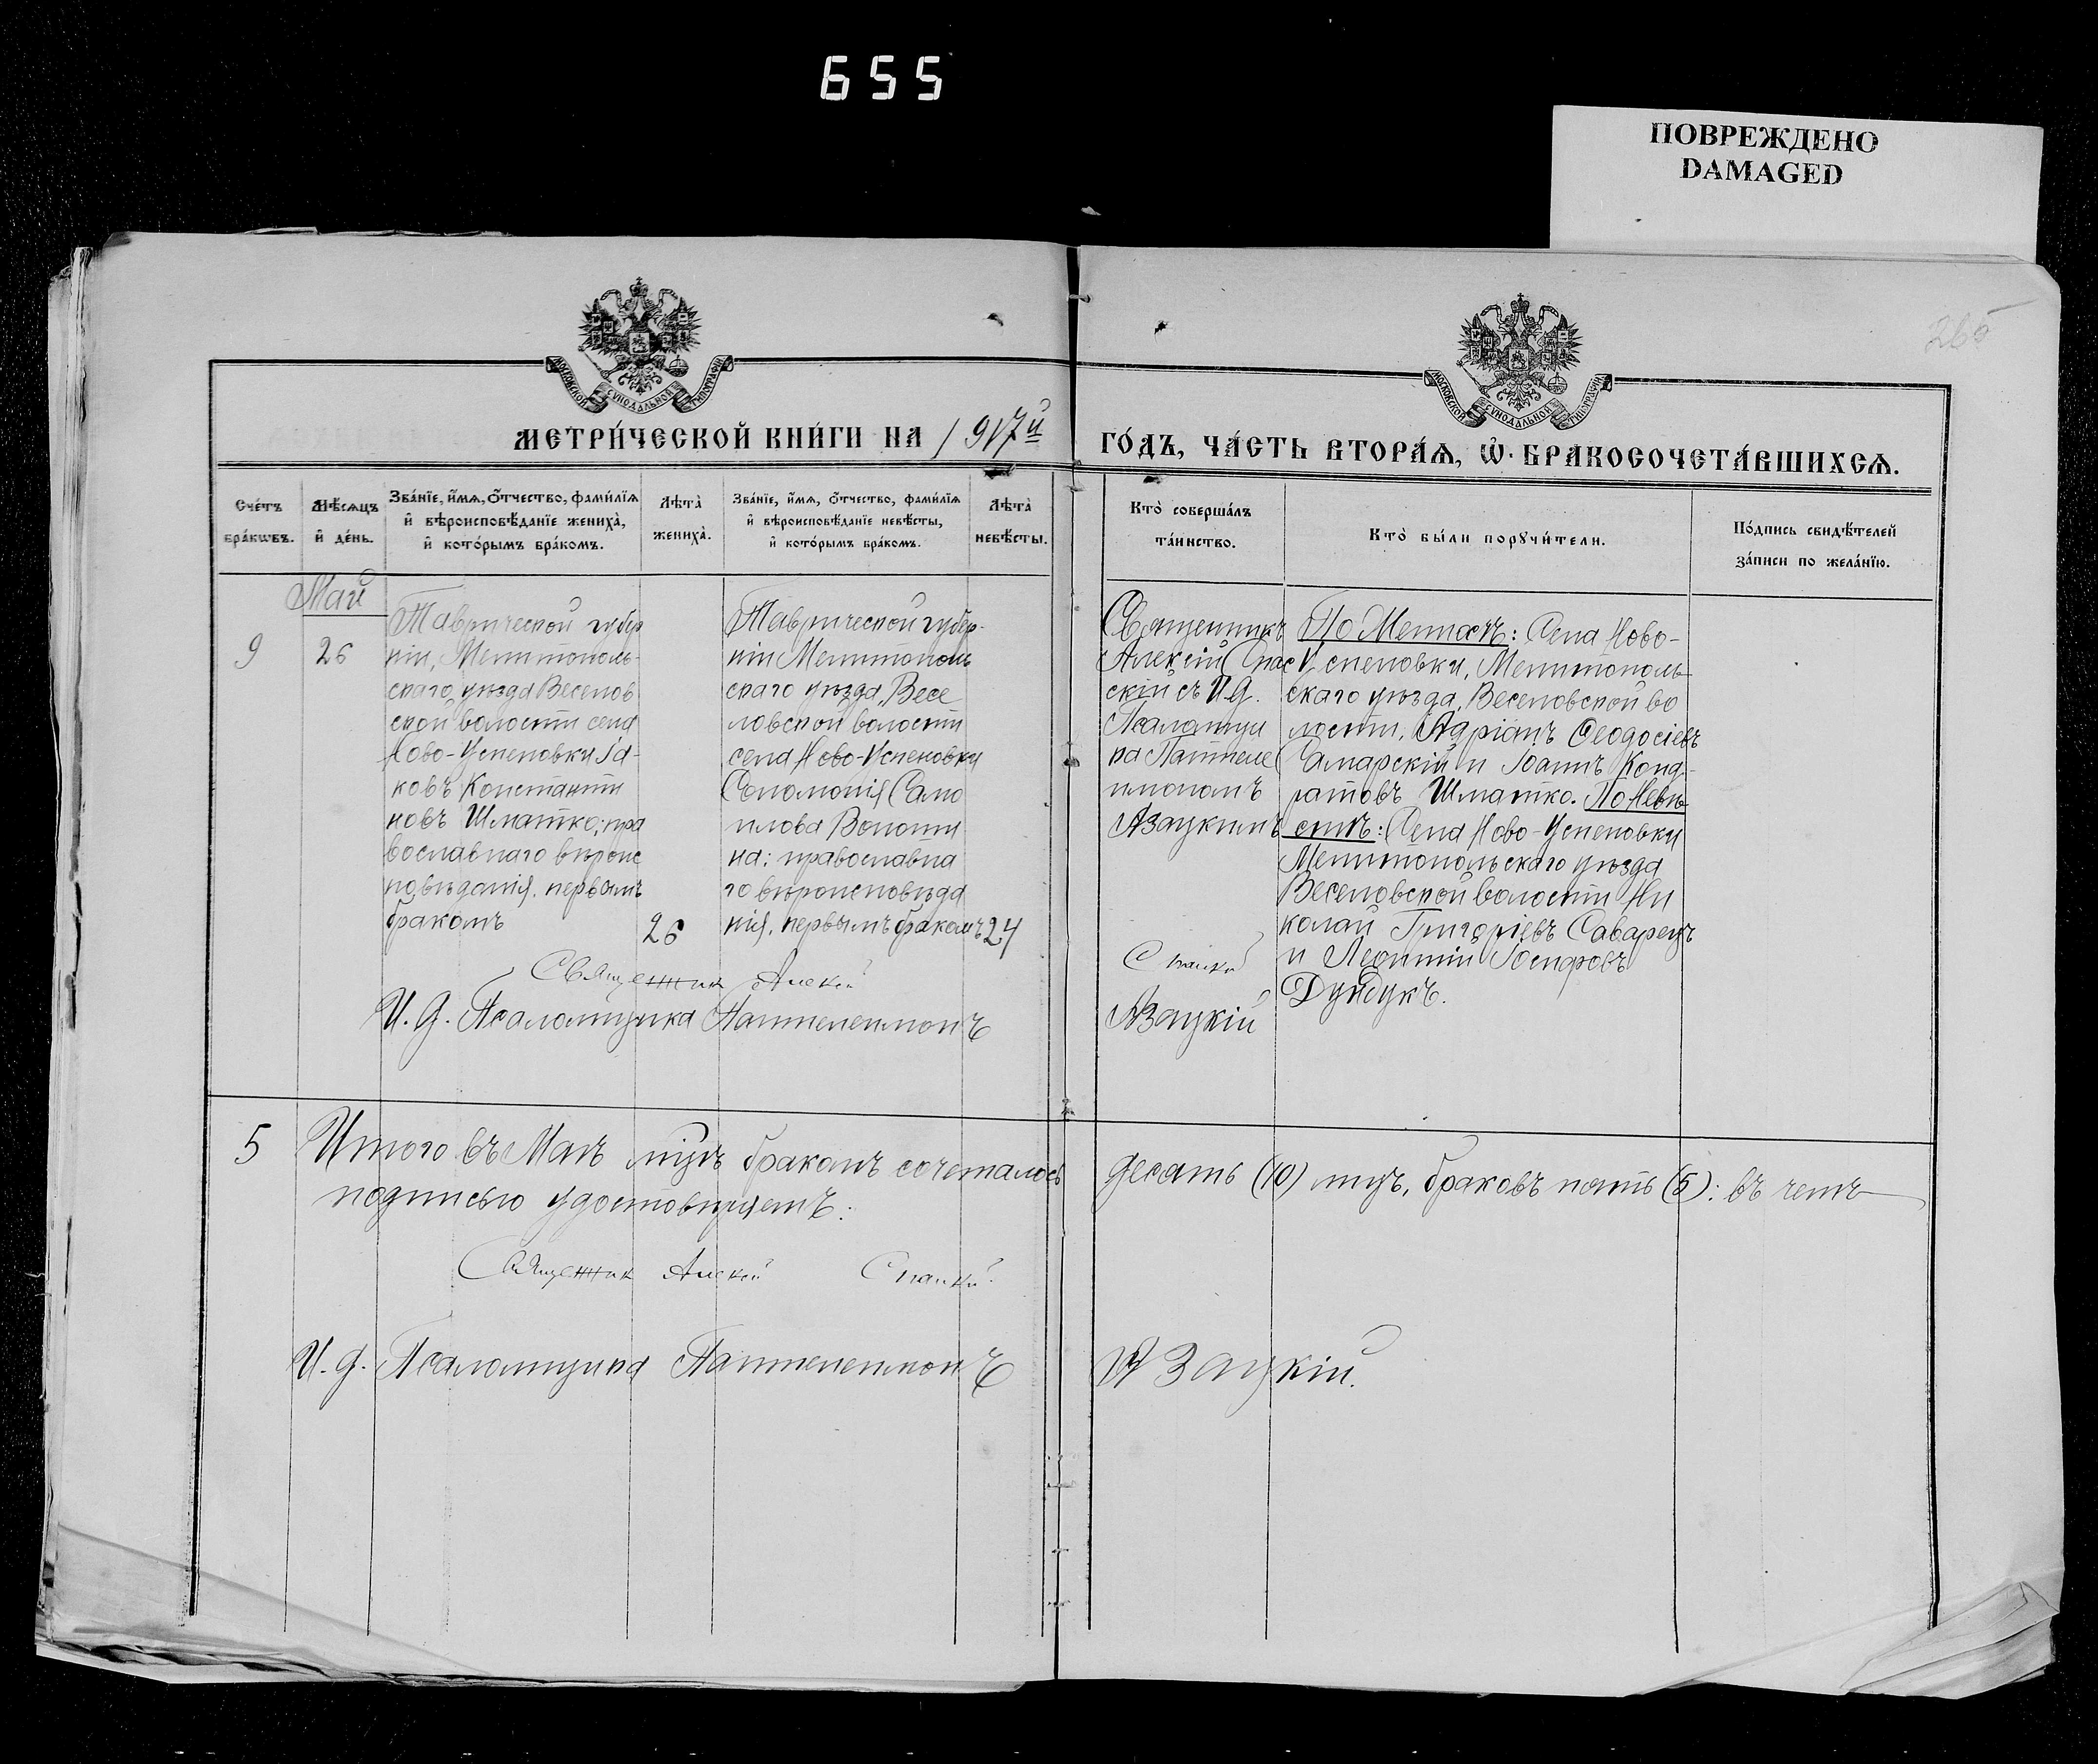 655
ПОВРЕЖДЕНО
DAMAGED
265
МОСКОВСКОЙ СѴНОДАЛЬНОЙ ТИПОГРАФІИ
МОСКОВСКОЙ СѴНОДАЛЬНОЙ ТИПОГРАФІИ
МЕТРИ́ЧЕСКОЙ КНИ́ГИ НА 1917й
ГО́ДЪ, ЧА́СТЬ ВТОРА́Ѧ, Ѡ҆ БРАКОСОЧЕТА́ВШИХСѦ.
Сче́тъ
бра́кѡвъ.
Мѣ́сѧцъ
и҆ де́нь.
Зва́нїе, и҆́мѧ, ѻ҆́тчество, фами́лїѧ
и҆ вѣроисповѣ́данїе жениха̀,
и҆ кото́рымъ бра́комъ.
Лѣта̀
жениха̀.
Зва́нїе, и҆́мѧ, ѻ҆́тчество, фами́лїѧ
и҆ вѣроисповѣ́данїе невѣ́сты,
и҆ кото́рымъ бра́комъ.
Лѣта̀
невѣ́сты.
Кто̀ соверша́лъ
та́инство.
Кто̀ бы́ли порꙋчи́тели.
По́дпись свидѣ́телей
за́писи по жела́нїю.
Май
9
26
Таврической губер
ніи, Мелитополь-
скаго уѣзда Веселов
ской волости села
Ново-Успеновки Іа-
ковъ Константи
новъ Шматко; пра
вославнаго вѣроис
повѣданія, первымъ
бракомъ
26
Таврической губер-
ніи Мелитополь
скаго уѣзда, Весе
ловской волости
села Ново-Успеновки
Соломонія Само
илова Волоши
на: православна
го вѣроисповѣда
нія, первымъ бракомъ
24
Священникъ
Алексій Спас
скій съ И.д.
Псаломщи
ка Пантеле
имономъ
Азацкимъ
По Женихѣ: Села Ново-
Успеновки, Мелитополь-
скаго уѣзда, Веселовской во
лости, Адріанъ Ѳеодосіевъ
Самарскій и Іоаннъ Конд-
ратовъ Шматко. По Невѣ-
стѣ: Села Ново-Успеновки
Мелитопольскаго уѣзда
Веселовской волости Ни
колай Григоріевъ Саварецъ
и Леонтій Іосифовъ
Дундукъ.
Священник Алексій Спаскій
И. д. Псаломщика Пантелеимонъ Азацкій
5
Итого въ Маѣ мѣсяцѣ бракомъ сочеталось десять (10) лицъ, браковъ пять (5): въ чемъ
подписью удостовѣряемъ:
Священник Алексій Спаскій
И. д. Псаломщика Пантелеимонъ Азацкій.